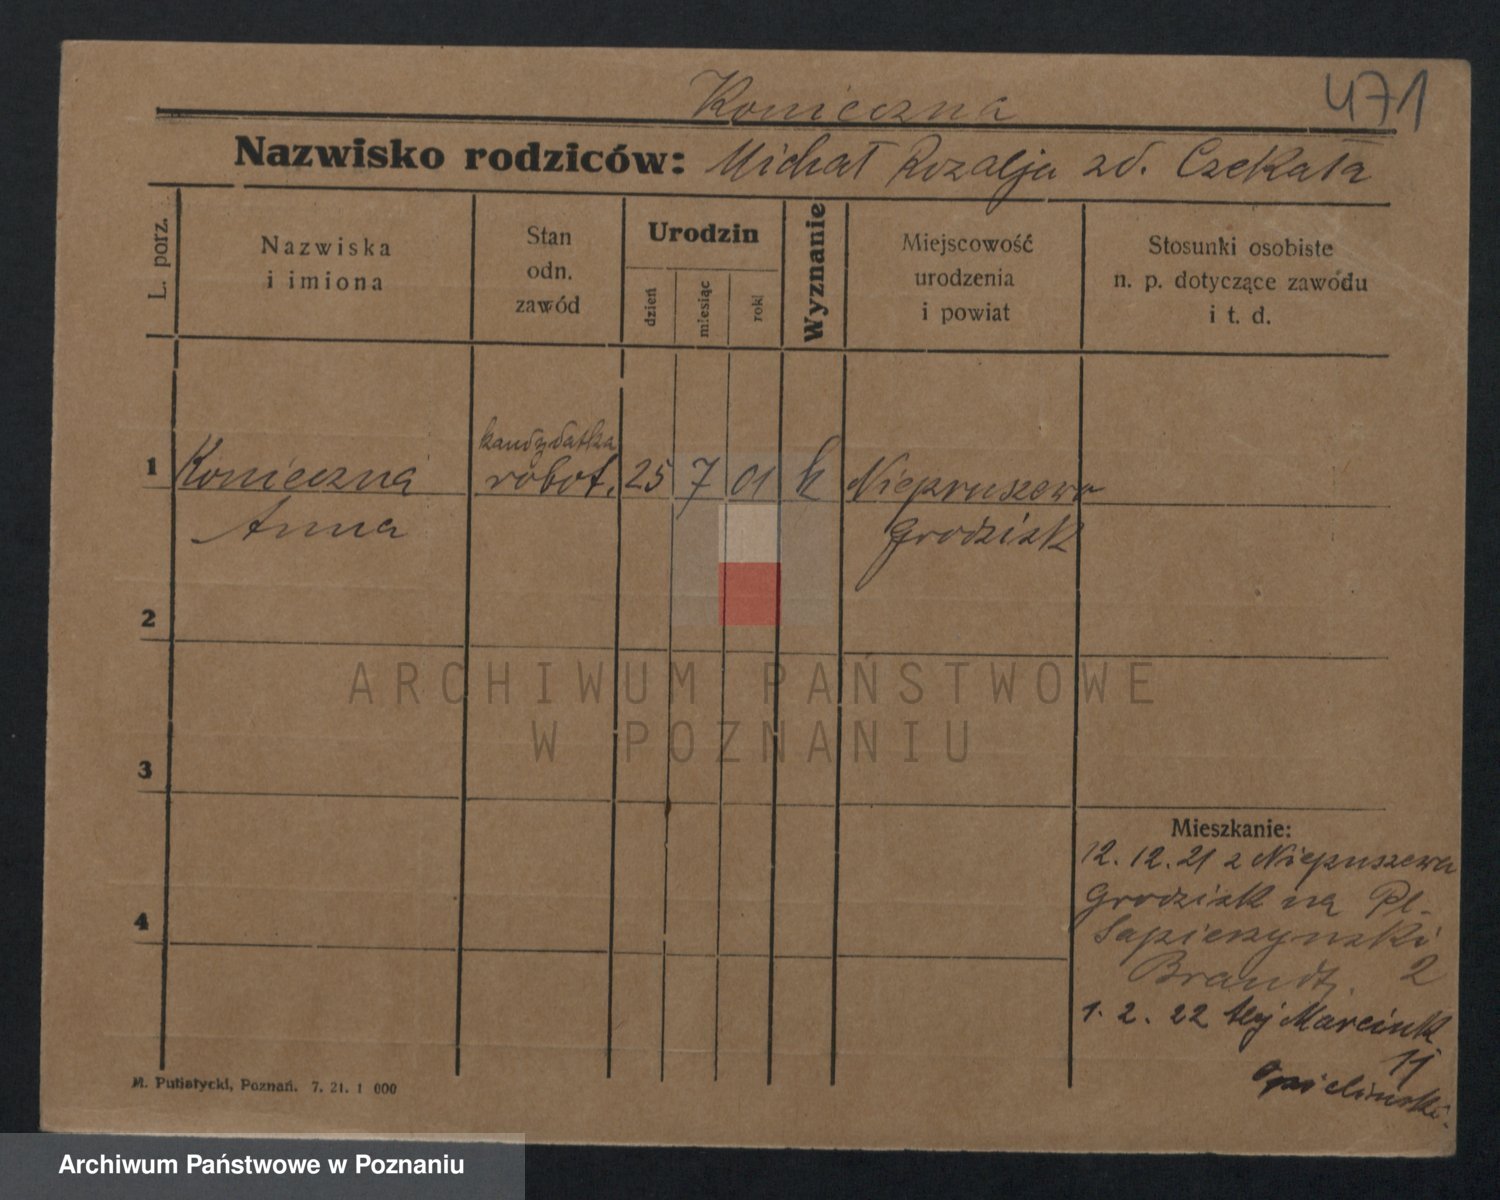 Konieczna
471
Nazwisko rodziców: Michał Rozalja zd. Czekała
L. porz.
Nazwiska
i imiona
Stan
odn.
zawód
Urodzin
dzień
miesiąc
rok
Wyznanie
Miejscowość
urodzenia
i powiat
Stosunki osobiste
n. p. dotyczące zawodu
i t. d.
kandydatka
1 Konieczna robot. 25 7 01 k Niepruszewo
Anna Grodzisk
2
3
4
Mieszkanie:
12. 12. 21 z Niepruszewa
Grodzisk na Pl.
Sapieżyński
Brandt. 2
1. 2. 22 Marcink
11
M. Putiatycki, Poznań. 7. 21. 1 000
ARCHIWUM PAŃSTWOWE
W POZNANIU
Archiwum Państwowe w Poznaniu